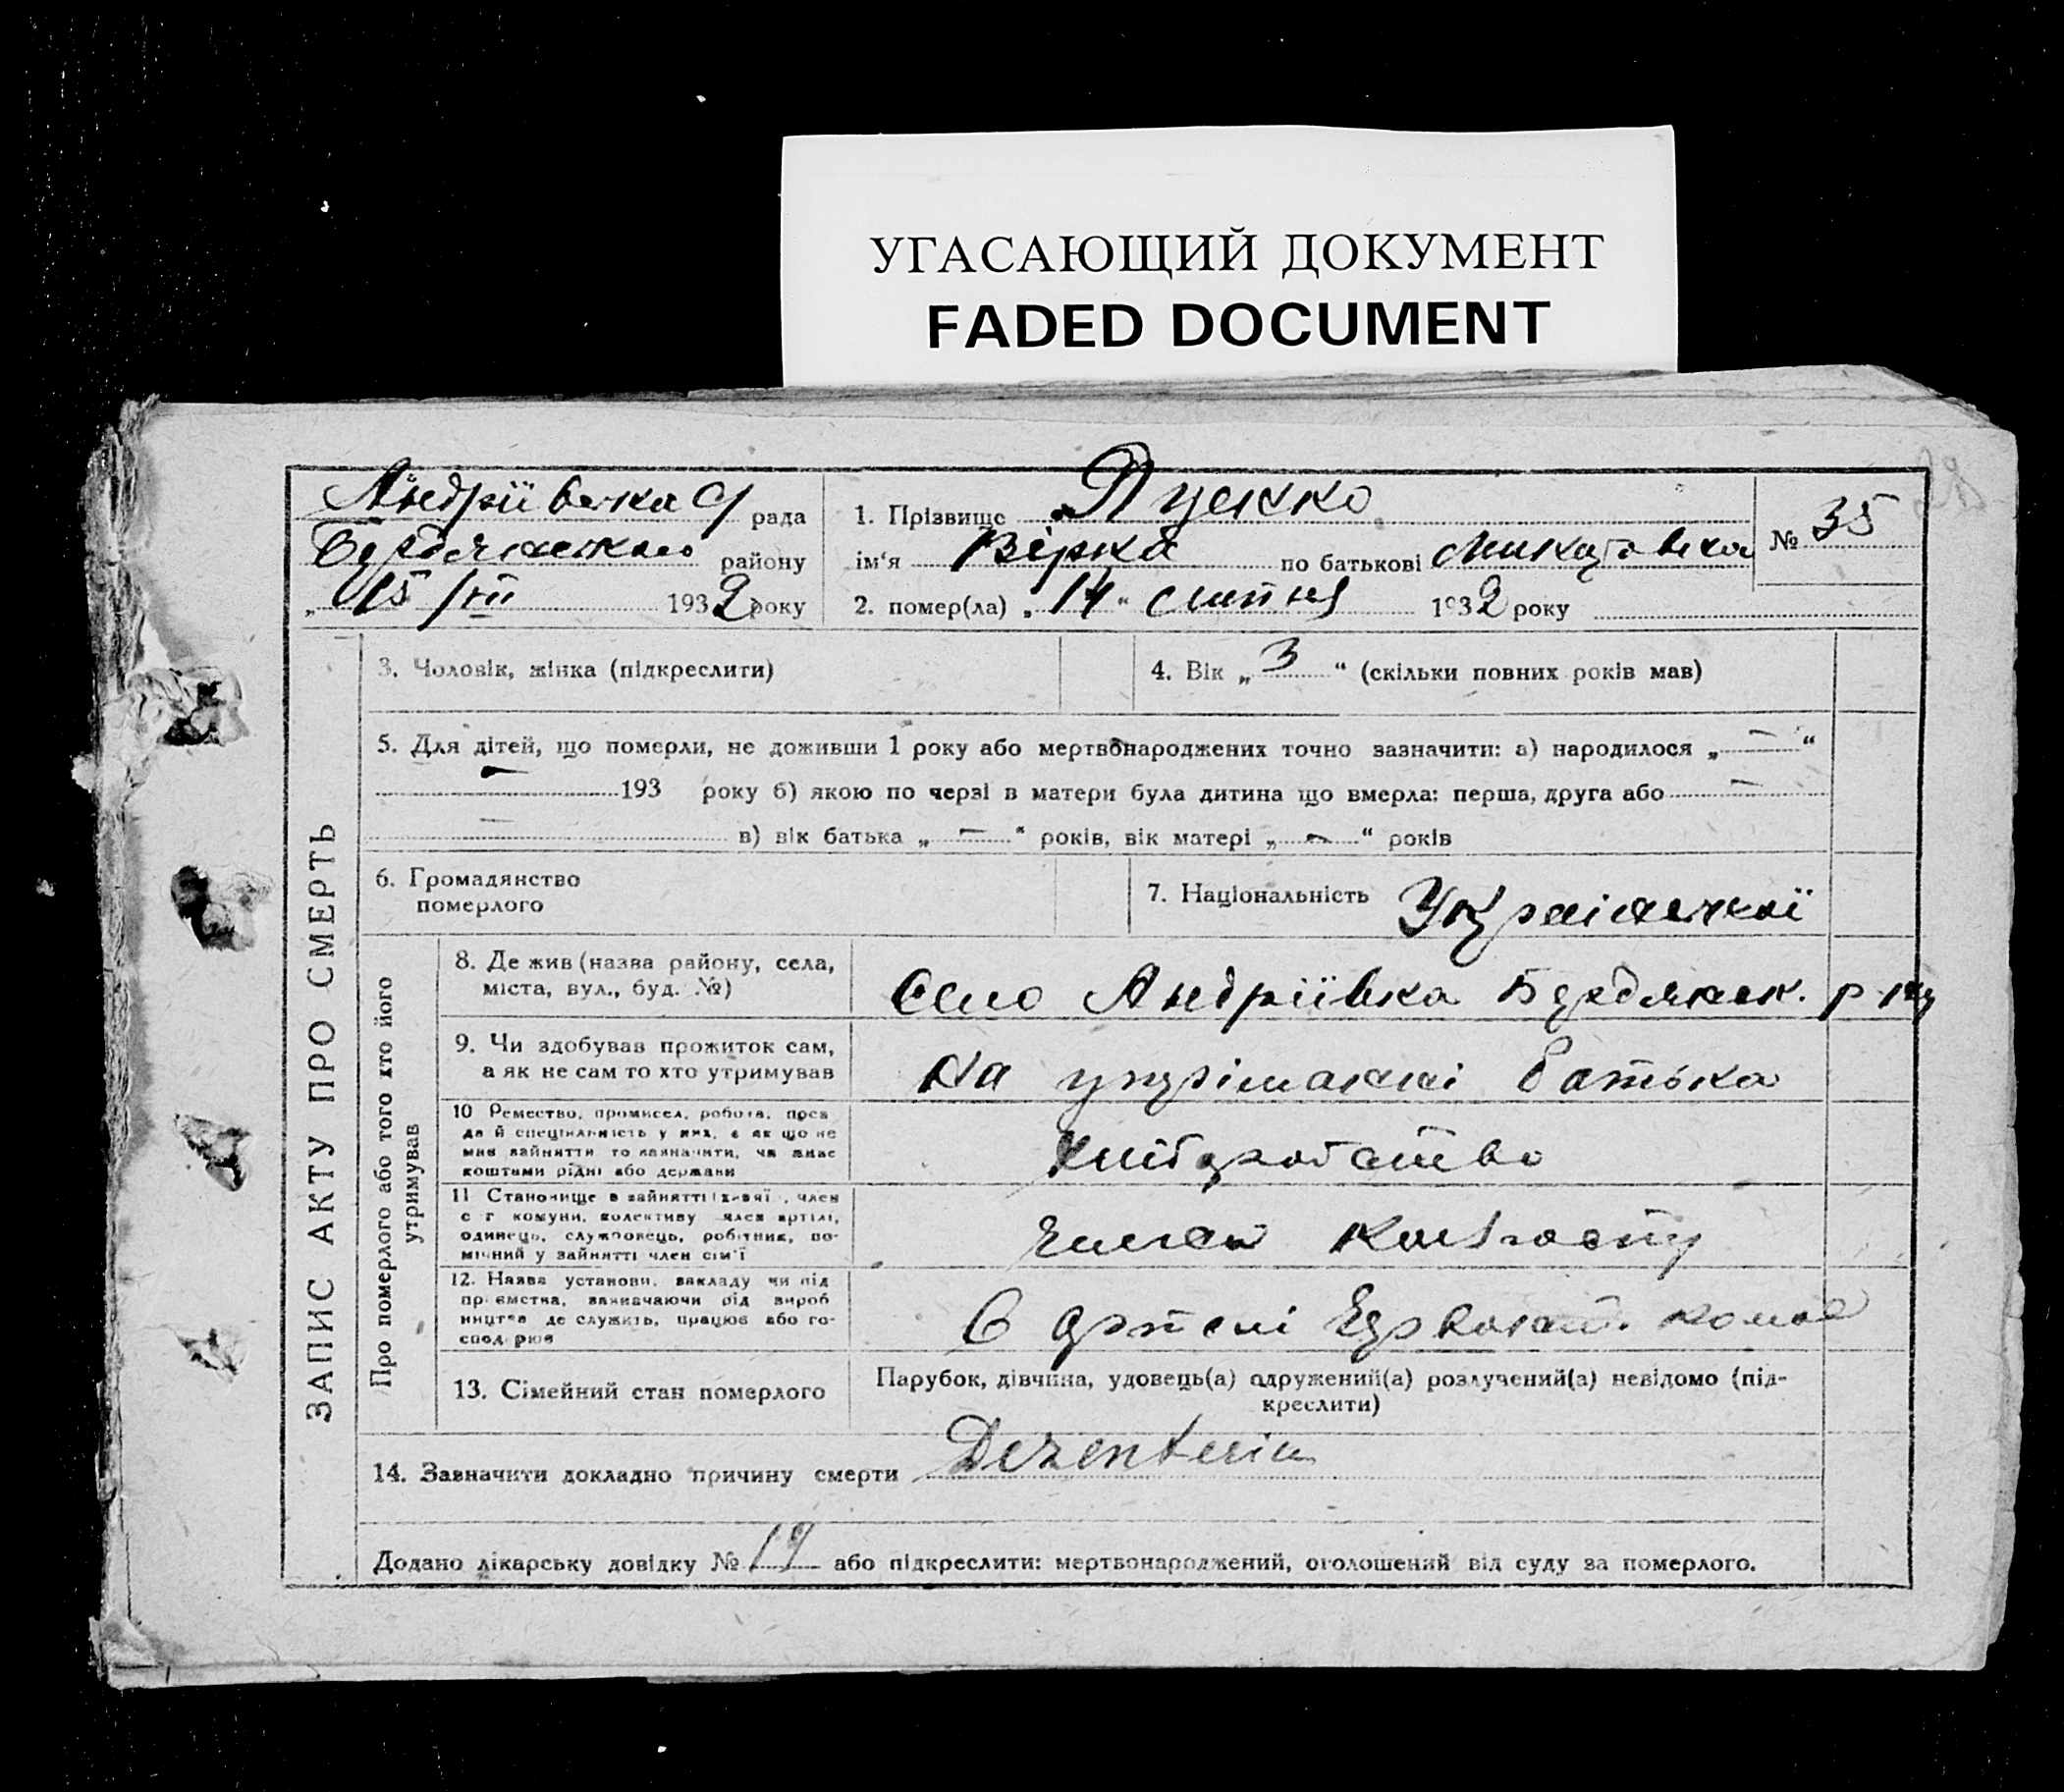 УГАСАЮЩИЙ ДОКУМЕНТ
FADED DOCUMENT
Андріївська С/ рада
Бердянського району
„ 15 /VII 1932 року
1. Прізвище Пушко
ім‘я Вірка по батькові
№ 35
2. помер(ла) „ 14 “ липня 1932 року
ЗАПИС АКТУ ПРО СМЕРТЬ
3. Чоловік, жінка (підкреслити)
4. Вік „ 3 “ (скільки повних років мав)
5. Для дітей, що померли, не доживши 1 року або мертвонароджених точно зазначити: а) народилося „ — “
— 193 року б) якою по черзі в матери була дитина що вмерла: перша, друга або —
— в) вік батька „ — “ років, вік матері „ — “ років
6. Громадянство
померлого
7. Національність Українській
Про померлого або того хто його
утримував
8. Де жив (назва району, села,
міста, вул., буд. №)
Село Андріївка Бердянськ. р-ну
9. Чи здобував прожиток сам,
а як не сам то хто утримував
На утрімаккі батька
10 Ремество, промисел, робота, поса
да й спеціяльність у них, а як що не
мав зайняття то зазначити, чи жив
коштами рідні або держави
хліборобство
11 Становище в зайнятті хазяї , член
с г комуни, колективу член артілі,
одинець, службовець, робітник, по-
мічний у зайнятті член сім‘ї
член колгоспу
12. Назва установи, закладу чи під
приємства, зазначаючи рід вироб
ництва де служить, працює або го-
сподарює
В артелі
13. Сімейний стан померлого
Парубок, дівчина, удовець(а) одружений(а) розлучений(а) невідомо (під-
креслити)
14. Зазначити докладно причину смерти Dezenteria
Додано лікарську довідку № 19 або підкреслити: мертвонароджений, оголошений від суду за померлого.